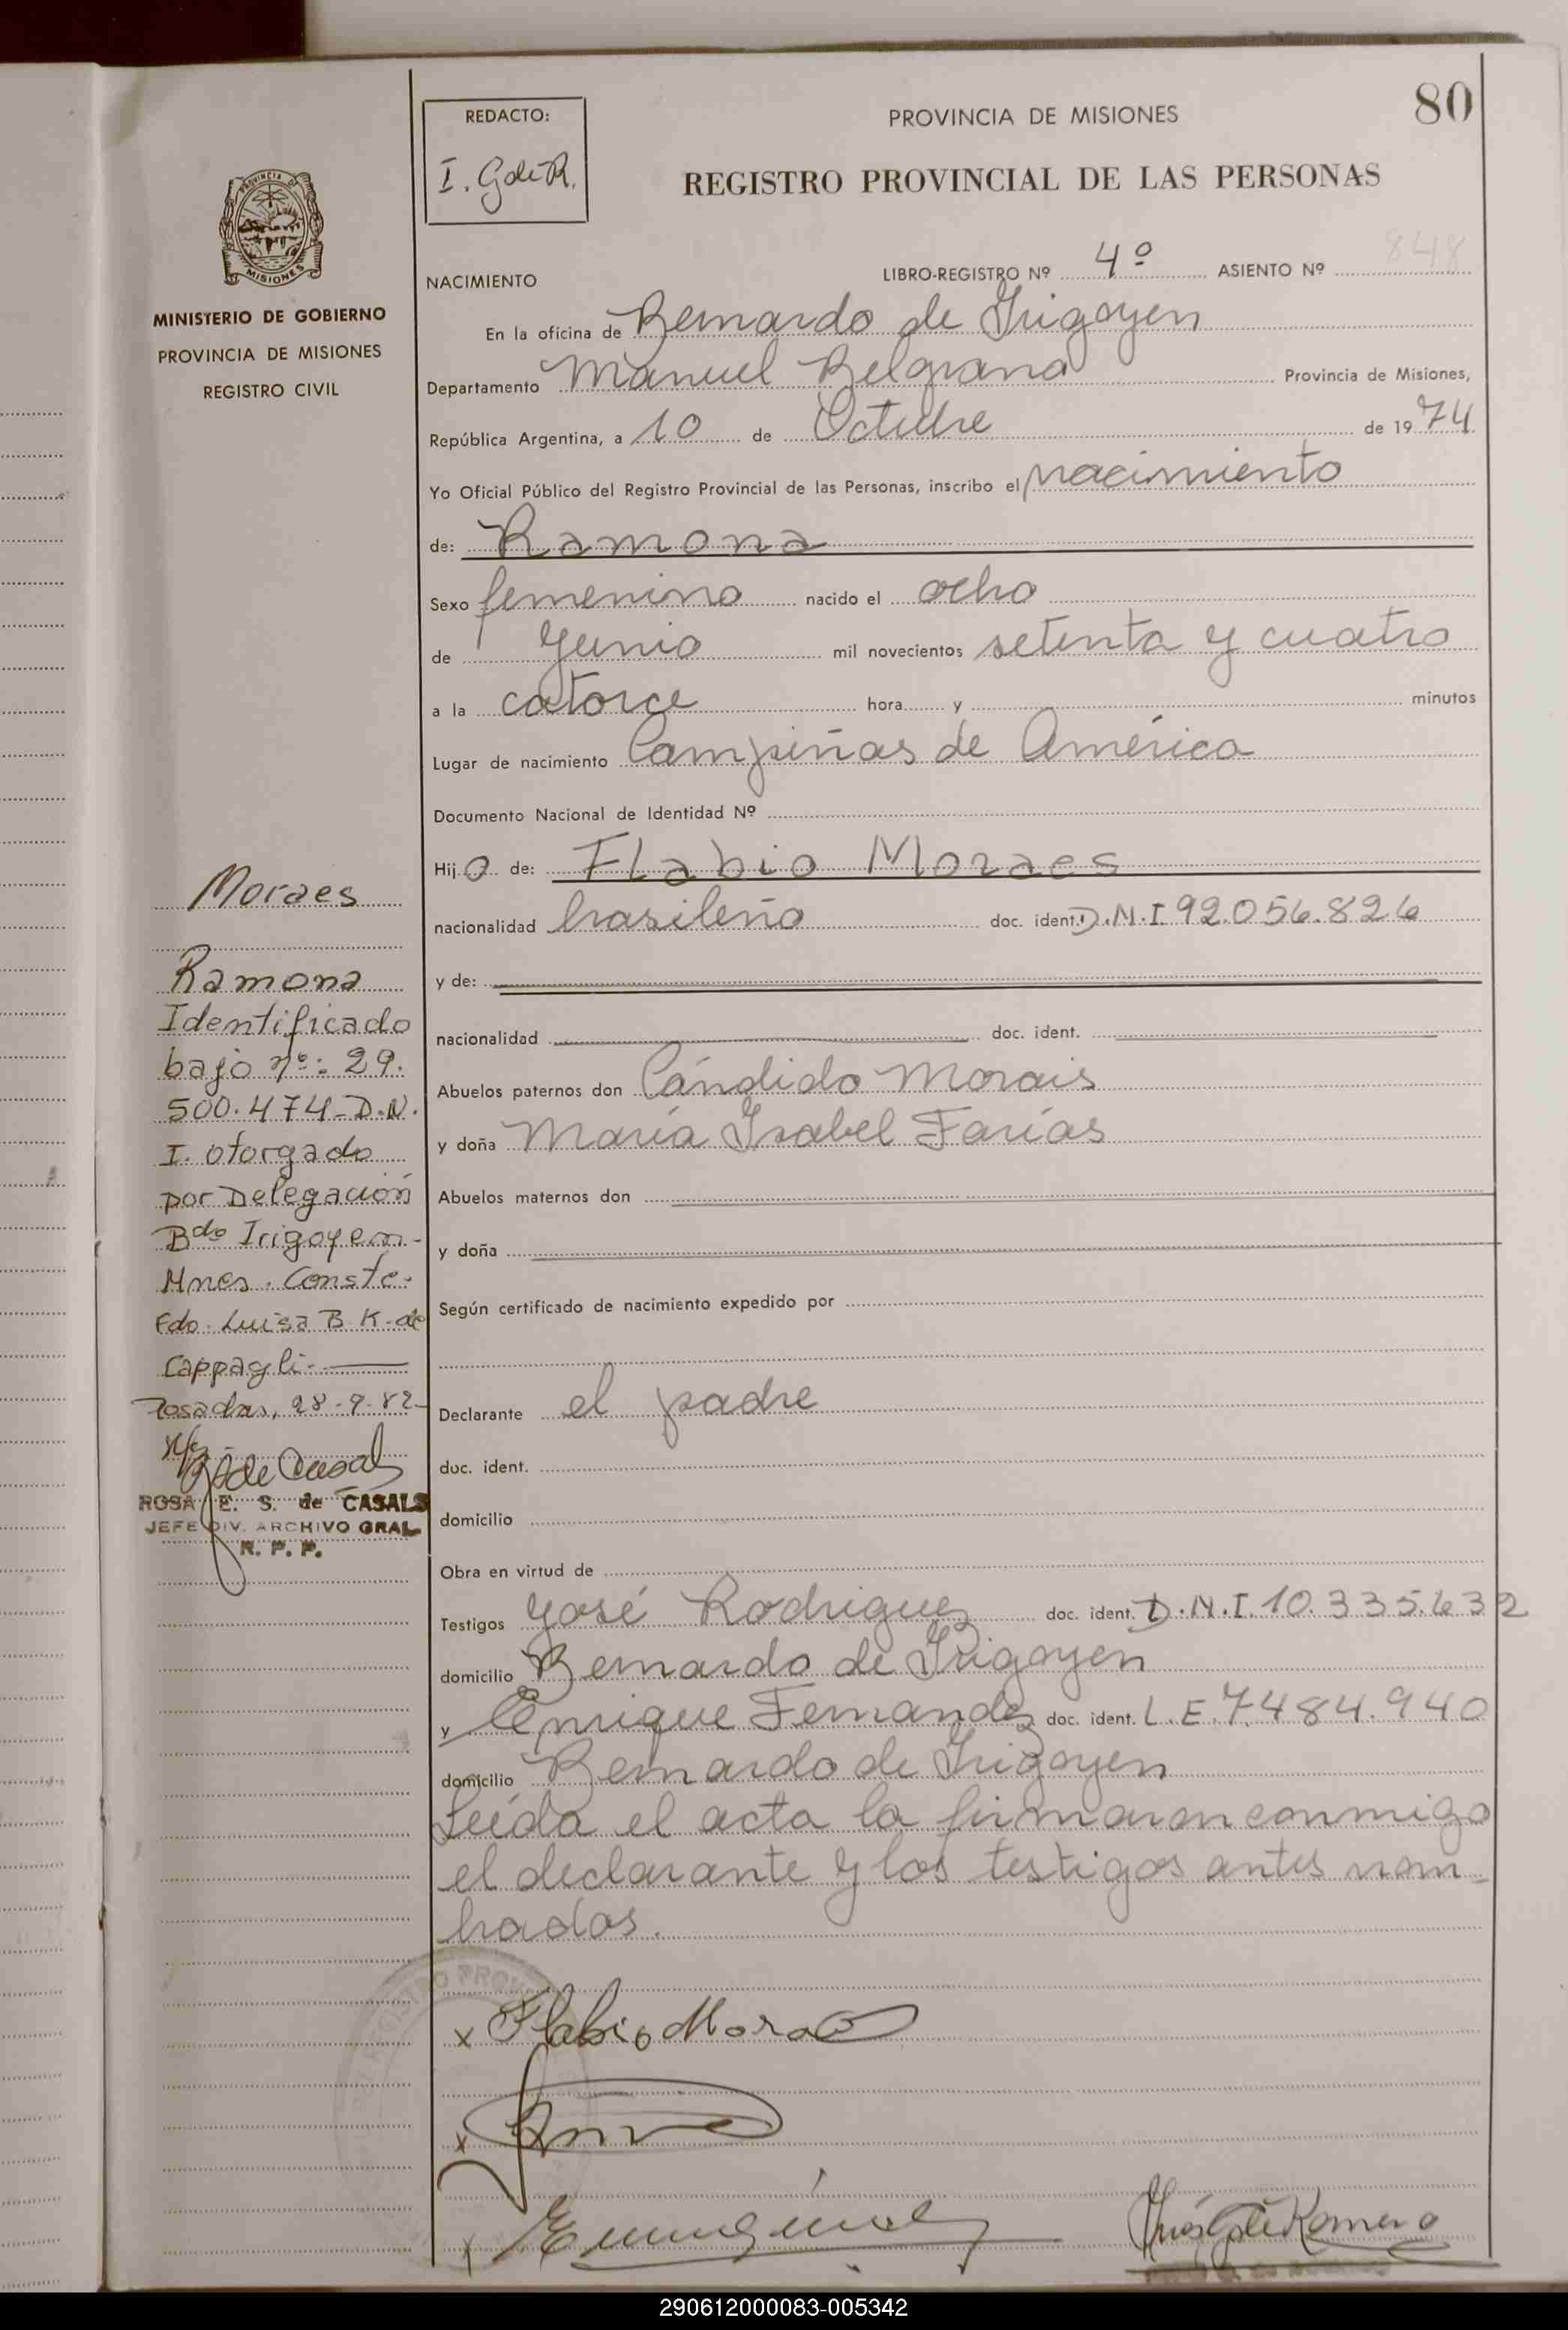 80
REDACTO:
I. G de R.
PROVINCIA DE MISIONES
REGISTRO PROVINCIAL DE LAS PERSONAS
PROVINCIA DE
MISIONES
MINISTERIO DE GOBIERNO
PROVINCIA DE MISIONES
REGISTRO CIVIL
NACIMIENTO
LIBRO-REGISTRO Nº 4º ASIENTO Nº 848
En la oficina de Bernardo de Irigoyen
Departamento Manuel Belgrano Provincia de Misiones,
República Argentina, a 10 de Octubre de 1974
Yo Oficial Público del Registro Provincial de las Personas, inscribo el nacimiento
de: Ramona
Sexo femenino nacido el ocho
de Junio mil novecientos setenta y cuatro
a la catorce hora y minutos
Lugar de nacimiento Campiñas de América
Documento Nacional de Identidad Nº
Hija de: Flabio Moraes
nacionalidad brasileño doc. ident. D.N.I 92.056.826
y de:
nacionalidad doc. ident.
Abuelos paternos don Cándido Morais
y doña María Isabel Farías
Abuelos maternos don
y doña
Según certificado de nacimiento expedido por
Declarante el padre
doc. ident.
domicilio
Obra en virtud de
Testigos José Rodriguez doc. ident. D.N.I. 10.335.632
domicilio Bernardo de Irigoyen
y Enrique Fernandez doc. ident. L.E. 7.484.940
domicilio Bernardo de Irigoyen
Leída el acta la firmaron conmigo
el declarante y los testigos antes nom-
brados.
Moraes
Ramona
Identificado
bajo nº: 29.
500.474-D.N.
I. otorgado
por Delegación
Bdo Irigoyen-
Mnes. Conste.
Fdo. Luisa B K. de
Cappagli.
Posadas, 28-9-82-
ROSA E. S. de CASALS
JEFE DIV. ARCHIVO GRAL
R. P. P.
x Flabio Moraes
x
x
290612000083-005342